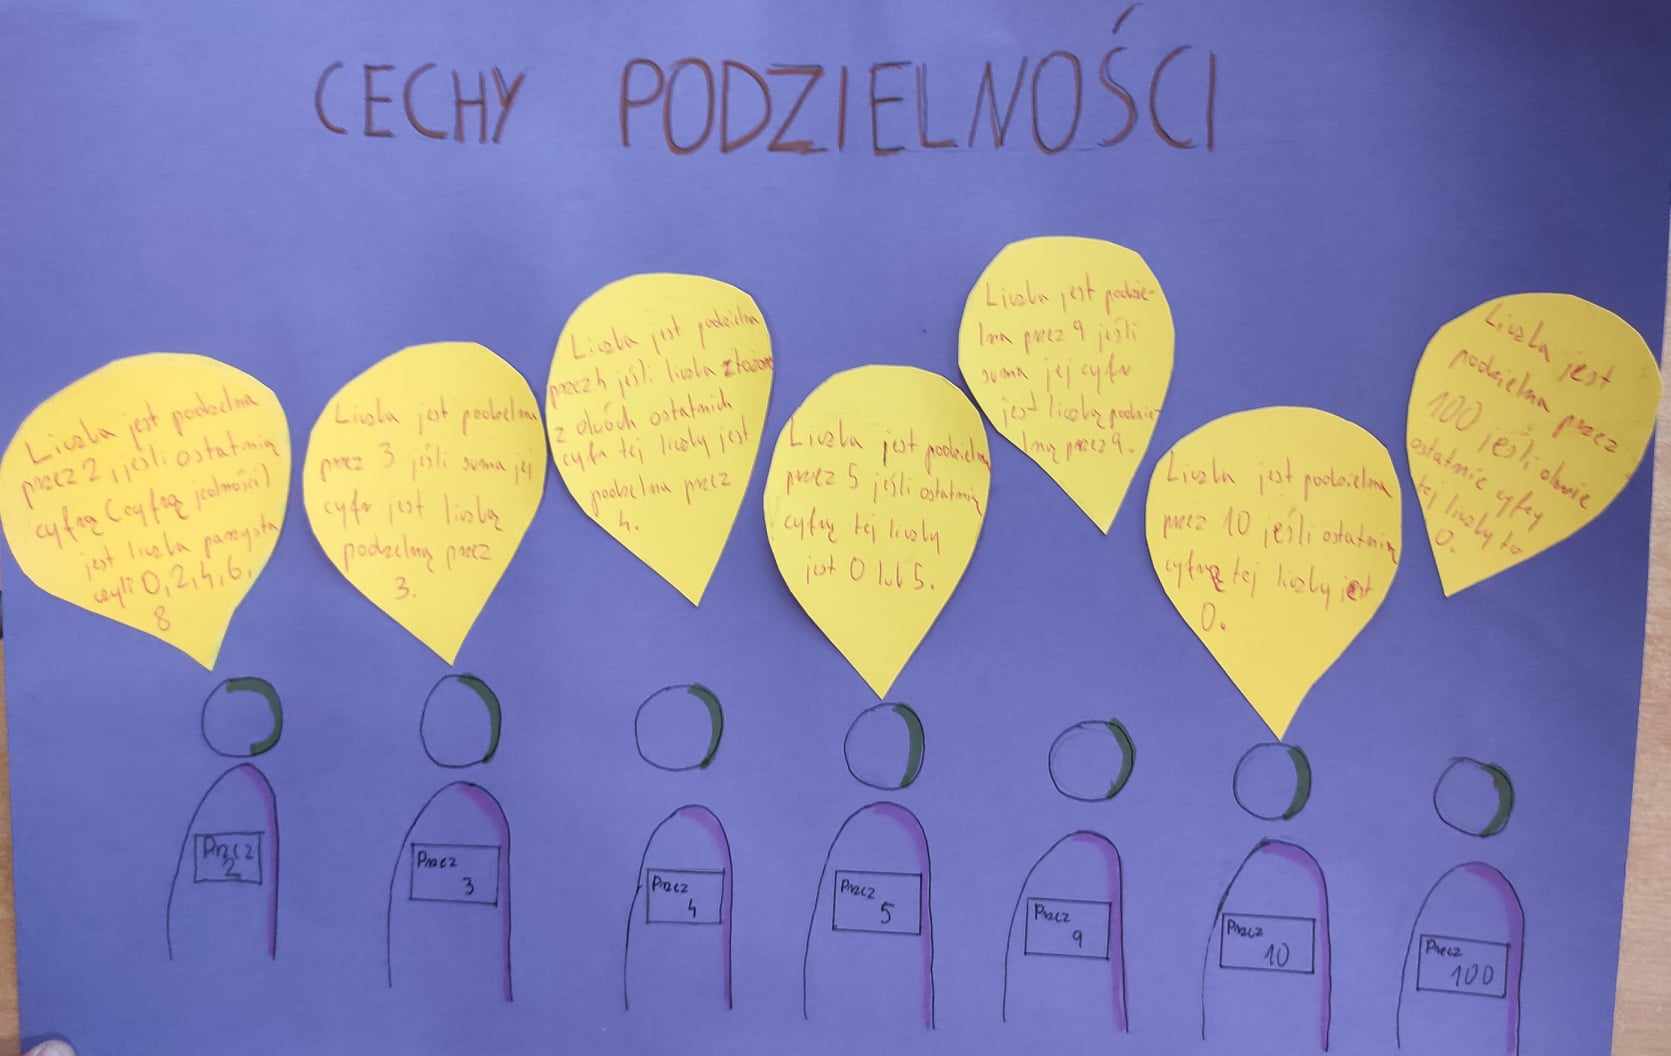 CECHY PODZIELNOŚCI
Liczba jest podzielna
przez 2, jeśli ostatnią
cyfrą (cyfrą jedności)
jest liczba parzysta
czyli 0, 2, 4, 6,
8
Liczba jest podzielna
przez 3 jeśli suma jej
cyfr jest liczbą
podzielną przez
3.
Liczba jest podzielna
przez 4 jeśli liczba złożona
z dwóch ostatnich
cyfr tej liczby jest
podzielna przez
4.
Liczba jest podzielna
przez 5 jeśli ostatnią
cyfrą tej liczby
jest 0 lub 5.
Liczba jest podzie-
lna przez 9 jeśli
suma jej cyfr
jest liczbą podzie-
lną przez 9.
Liczba jest podzielna
przez 10 jeśli ostatnią
cyfrą tej liczby jest
0.
Liczba jest
podzielna przez
100 jeśli obie
ostatnie cyfry
tej liczby to
0.
Przez
2
Przez
3
Przez
4
Przez
5
Przez
9
Przez
10
Przez
100